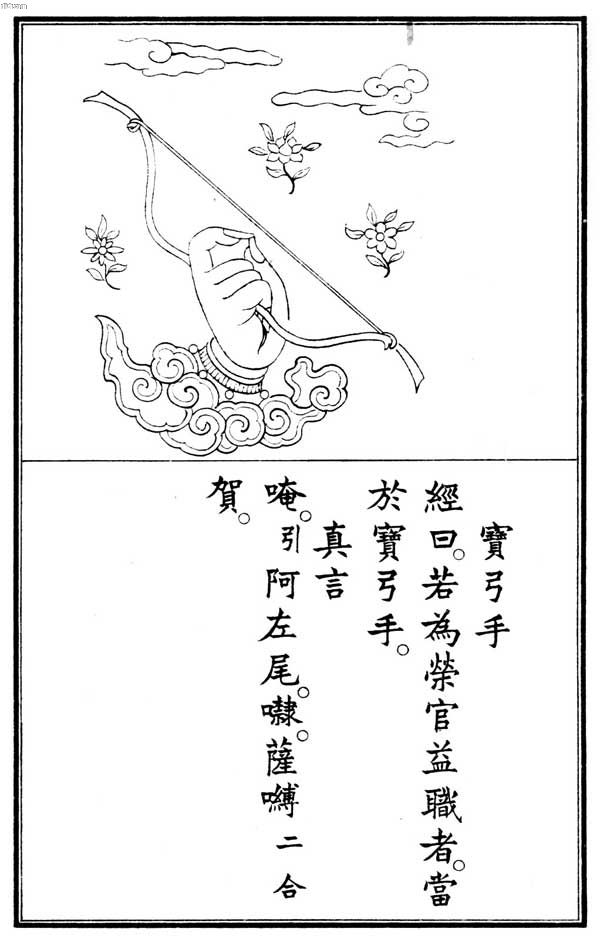 寶弓手
經曰。若為榮官益職者。當
於寶弓手。
真言
唵。引阿左尾。㘑。薩嚩二合
賀。